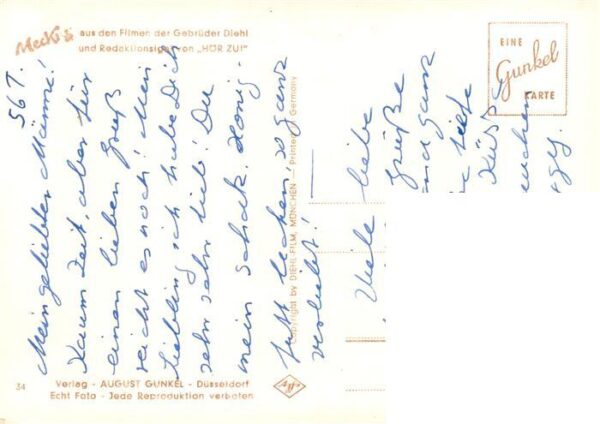 Mecki's aus den Filmen der Gebrüder Diehl
und Redaktionsigel von „HÖR ZU!“
EINE
Gunkel
KARTE
56 T.
Mein geliebter Männe!
Kaum Zeit, aber für
einen lieben Gruß
reicht es noch! Mein
Liebling, ich habe Dich
sehr sehr lieb! Du
mein Schatz. Honig-
lecken! So ganz
verliebt!
Copyright by DIEHL-FILM, MÜNCHEN — Printed in Germany
Viele liebe
Grüße
und ganz
tiefe
Küss
34
Verlag - AUGUST GUNKEL - Düsseldorf
Echt Foto - Jede Reproduktion verboten
Agfa